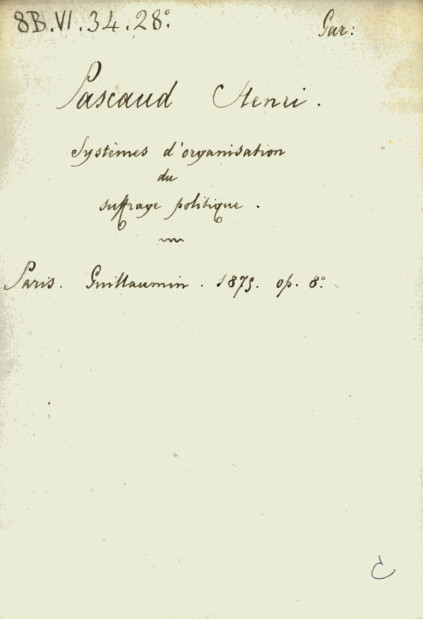 8B.VI.34.28° Gar:
Pascaud Henri.
Systèmes d'organisation
du
suffrage politique.
Paris. Guillaumin. 1875. op. 8°.
C